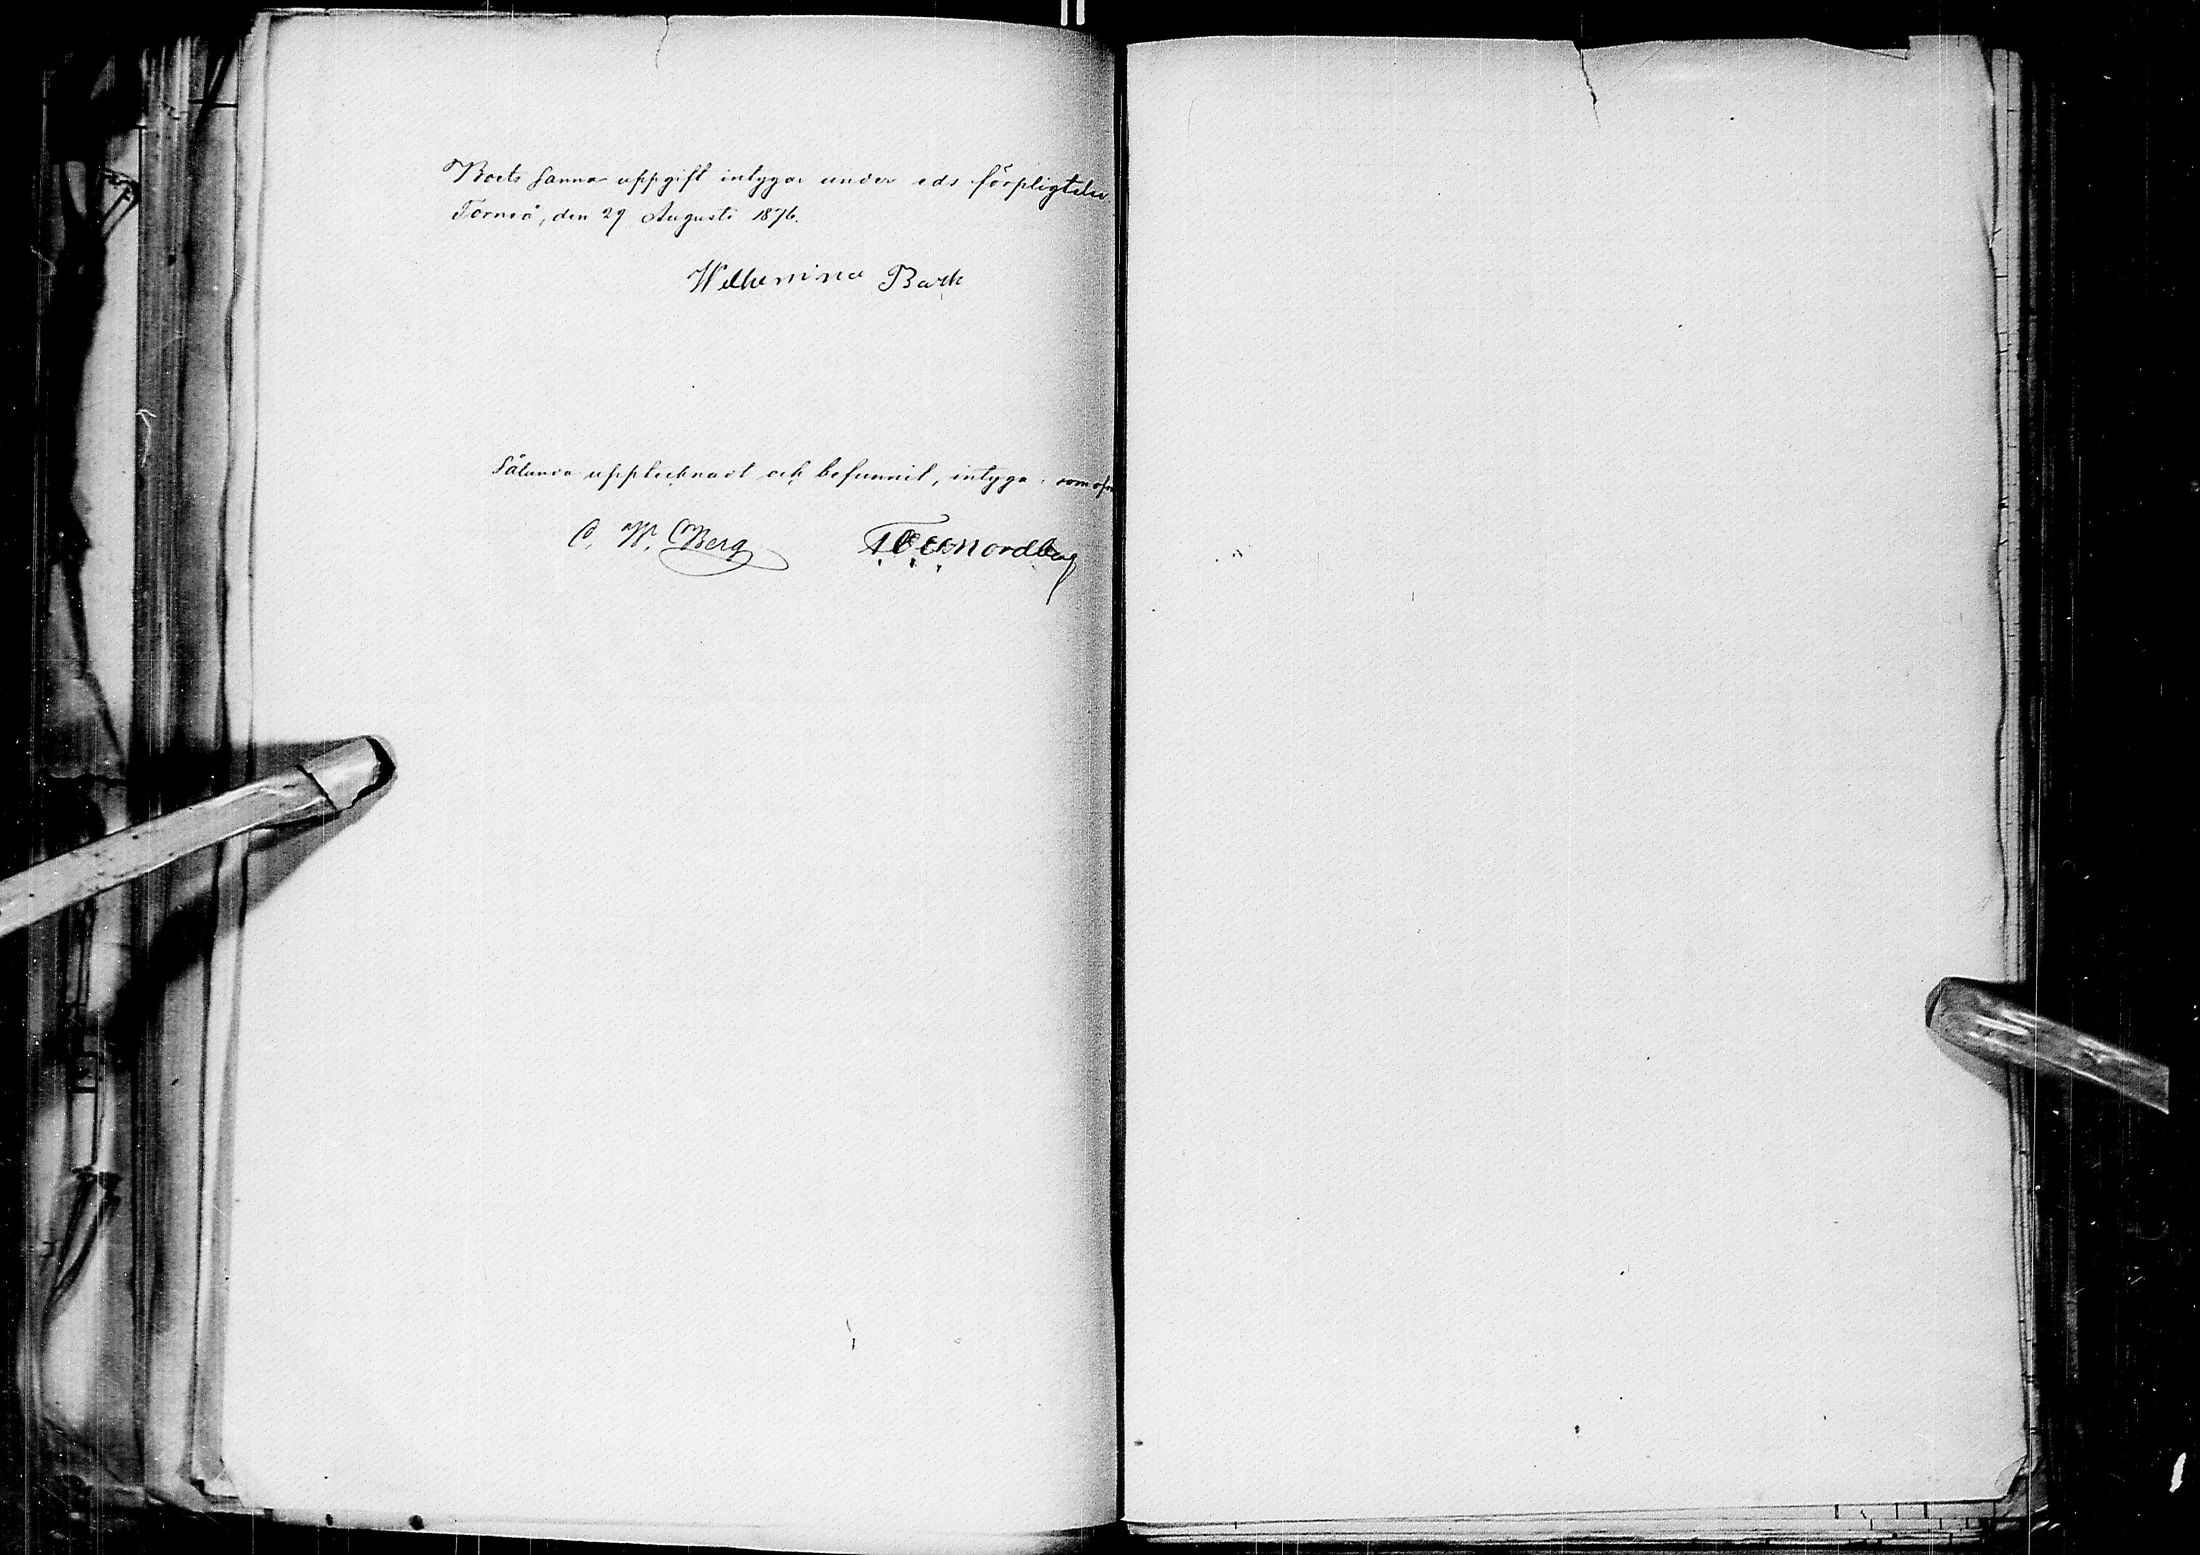 Boets sanna uppgift intygar under eds förpligtelse
Torneå, den 29 Augusti 1876.
Wilhemina Bark
Sålunda upptecknadt och befunnit, intyga: som ofvan
C. W. Berg Nordberg